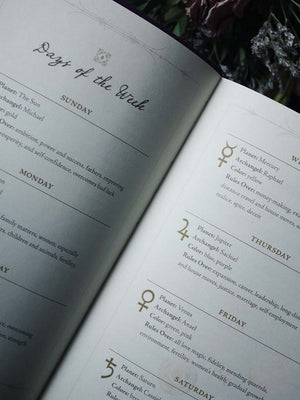 Days of the Week
SUNDAY
Planet: The Sun
Archangel: Michael
gold
Over: ambition, power and success, fathers, repairing
prosperity, and self-confidence, overcomes bad luck
MONDAY
family matters, women, especially
children and animals, families
DAY
overcoming
strength
W
Planet: Mercury
Archangel: Raphael
Color: yellow
Rules Over: money-making,
distance travel and house moves,
malice, spite, deceit
THURSDAY
Planet: Jupiter
Archangel: Sachiel
Color: blue, purple
Rules Over: expansion, career, leadership, long-dis
and house moves, justice, marriage, self-employment
FRIDAY
Planet: Venus
Archangel: Anael
Color: green, pink
Rules Over: all love magic, fidelity, mending quarrels,
environment, fertility, women's health, gradual growth
SATURDAY
Planet: Saturn
Archangel: Cassiel
Color: brown,